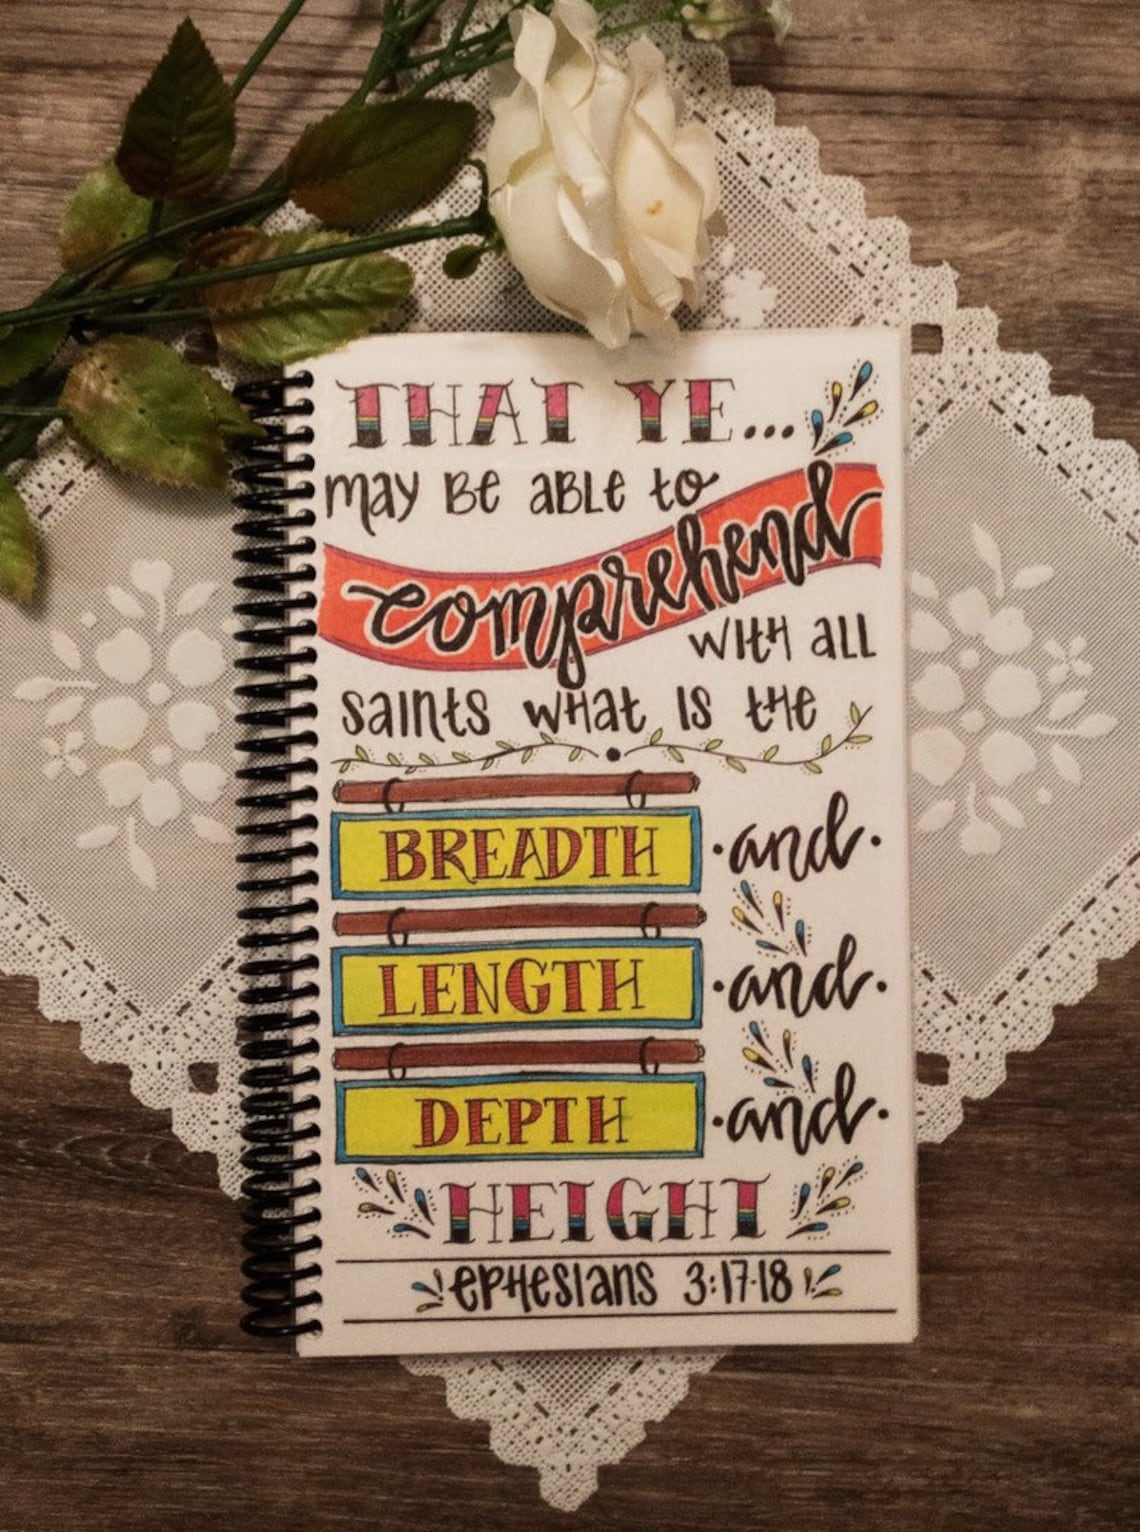 THAT YE...
may Be aBLe to
comprehend
WItH aLL
saInts wHat Is tHe
BREADTH ·and·
LENGTH ·and·
DEPTH ·and·
HEIGHT
ePHesIans 3:17-18